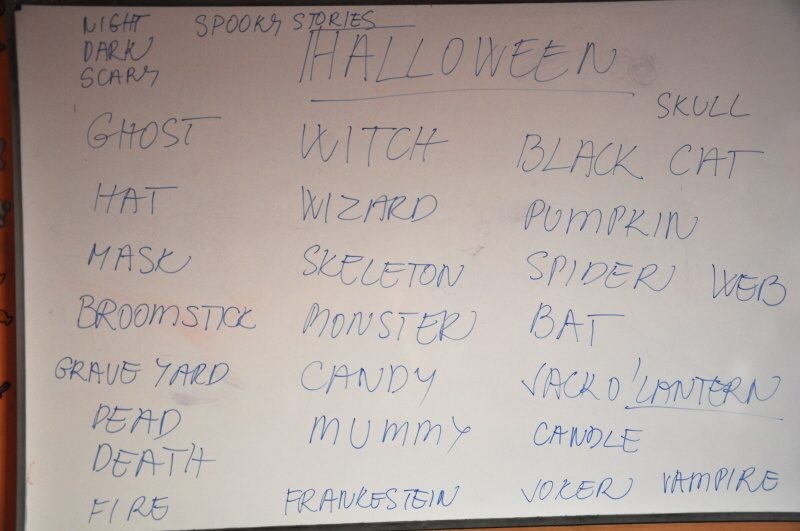 NIGHT SPOOKY STORIES
DARK
SCARY
HALLOWEEN
SKULL
GHOST WITCH BLACK CAT
HAT WIZARD PUMPKIN
MASK SKELETON SPIDER WEB
BROOMSTICK MONSTER BAT
GRAVE YARD CANDY JACK O'LANTERN
DEAD MUMMY CANDLE
DEATH
FIRE FRANKESTEIN JOKER VAMPIRE